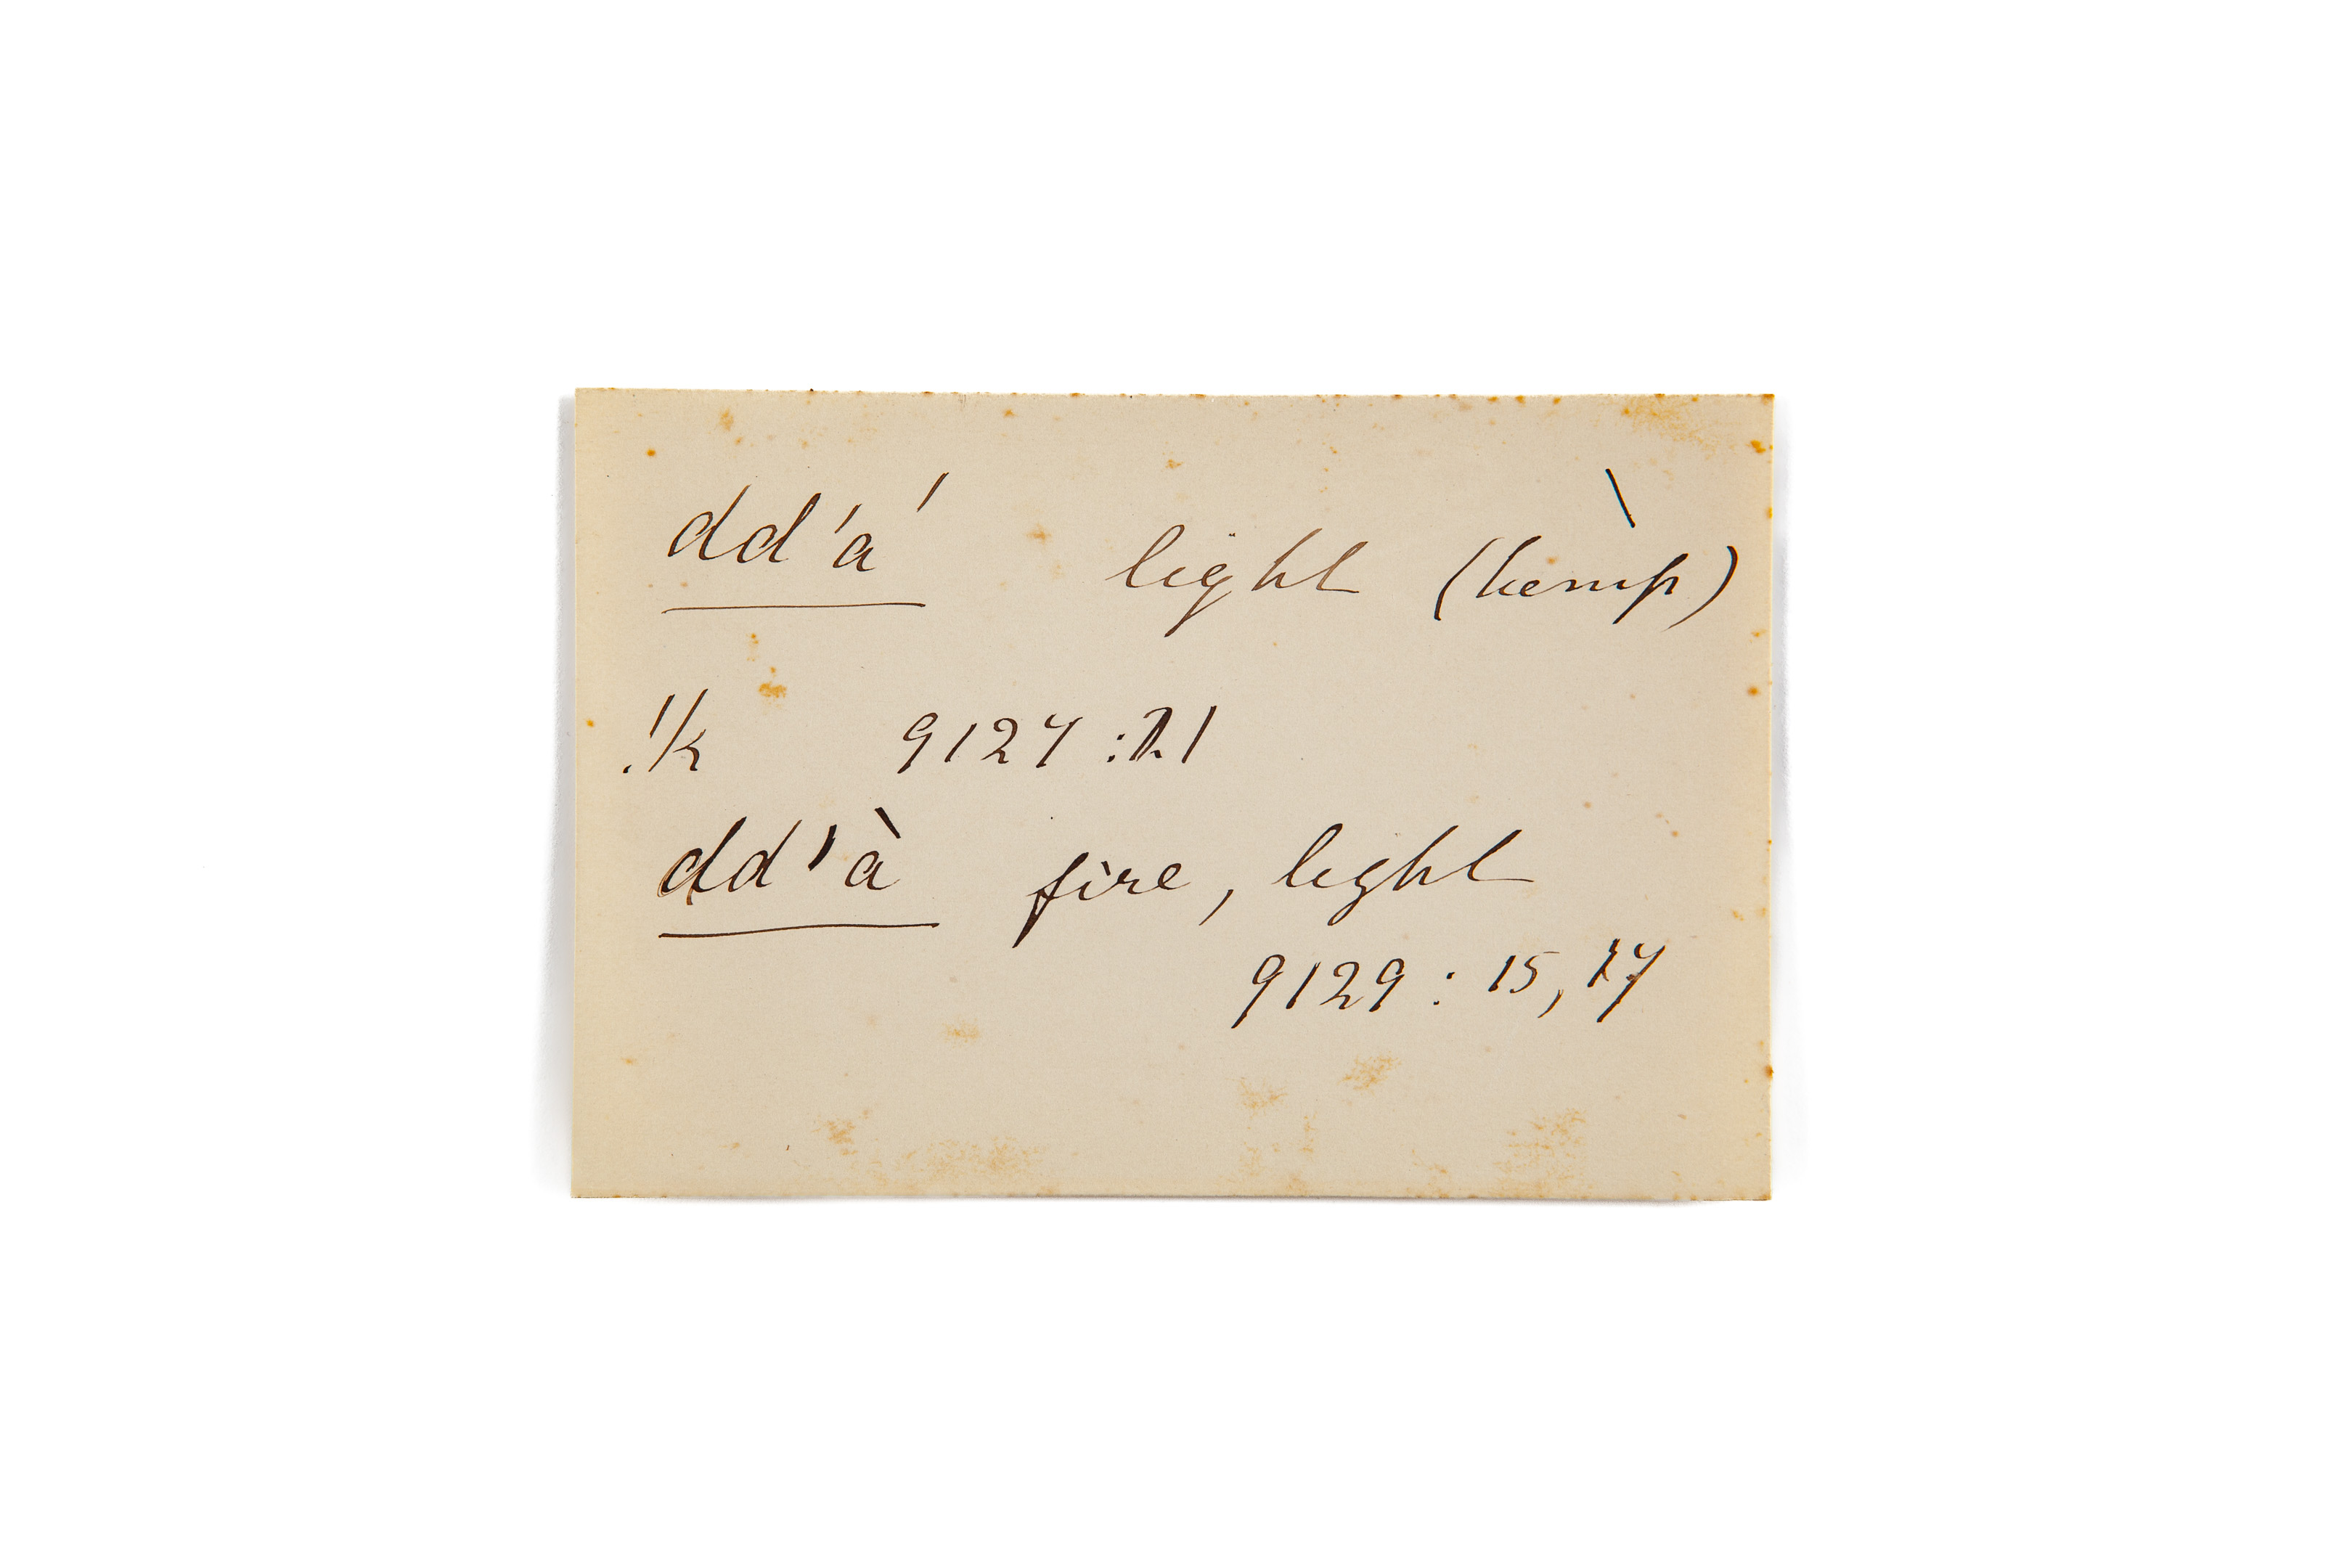 dd'á light (hemp)
!k 9127:21
dd'à fire, light
9129: 15, 17